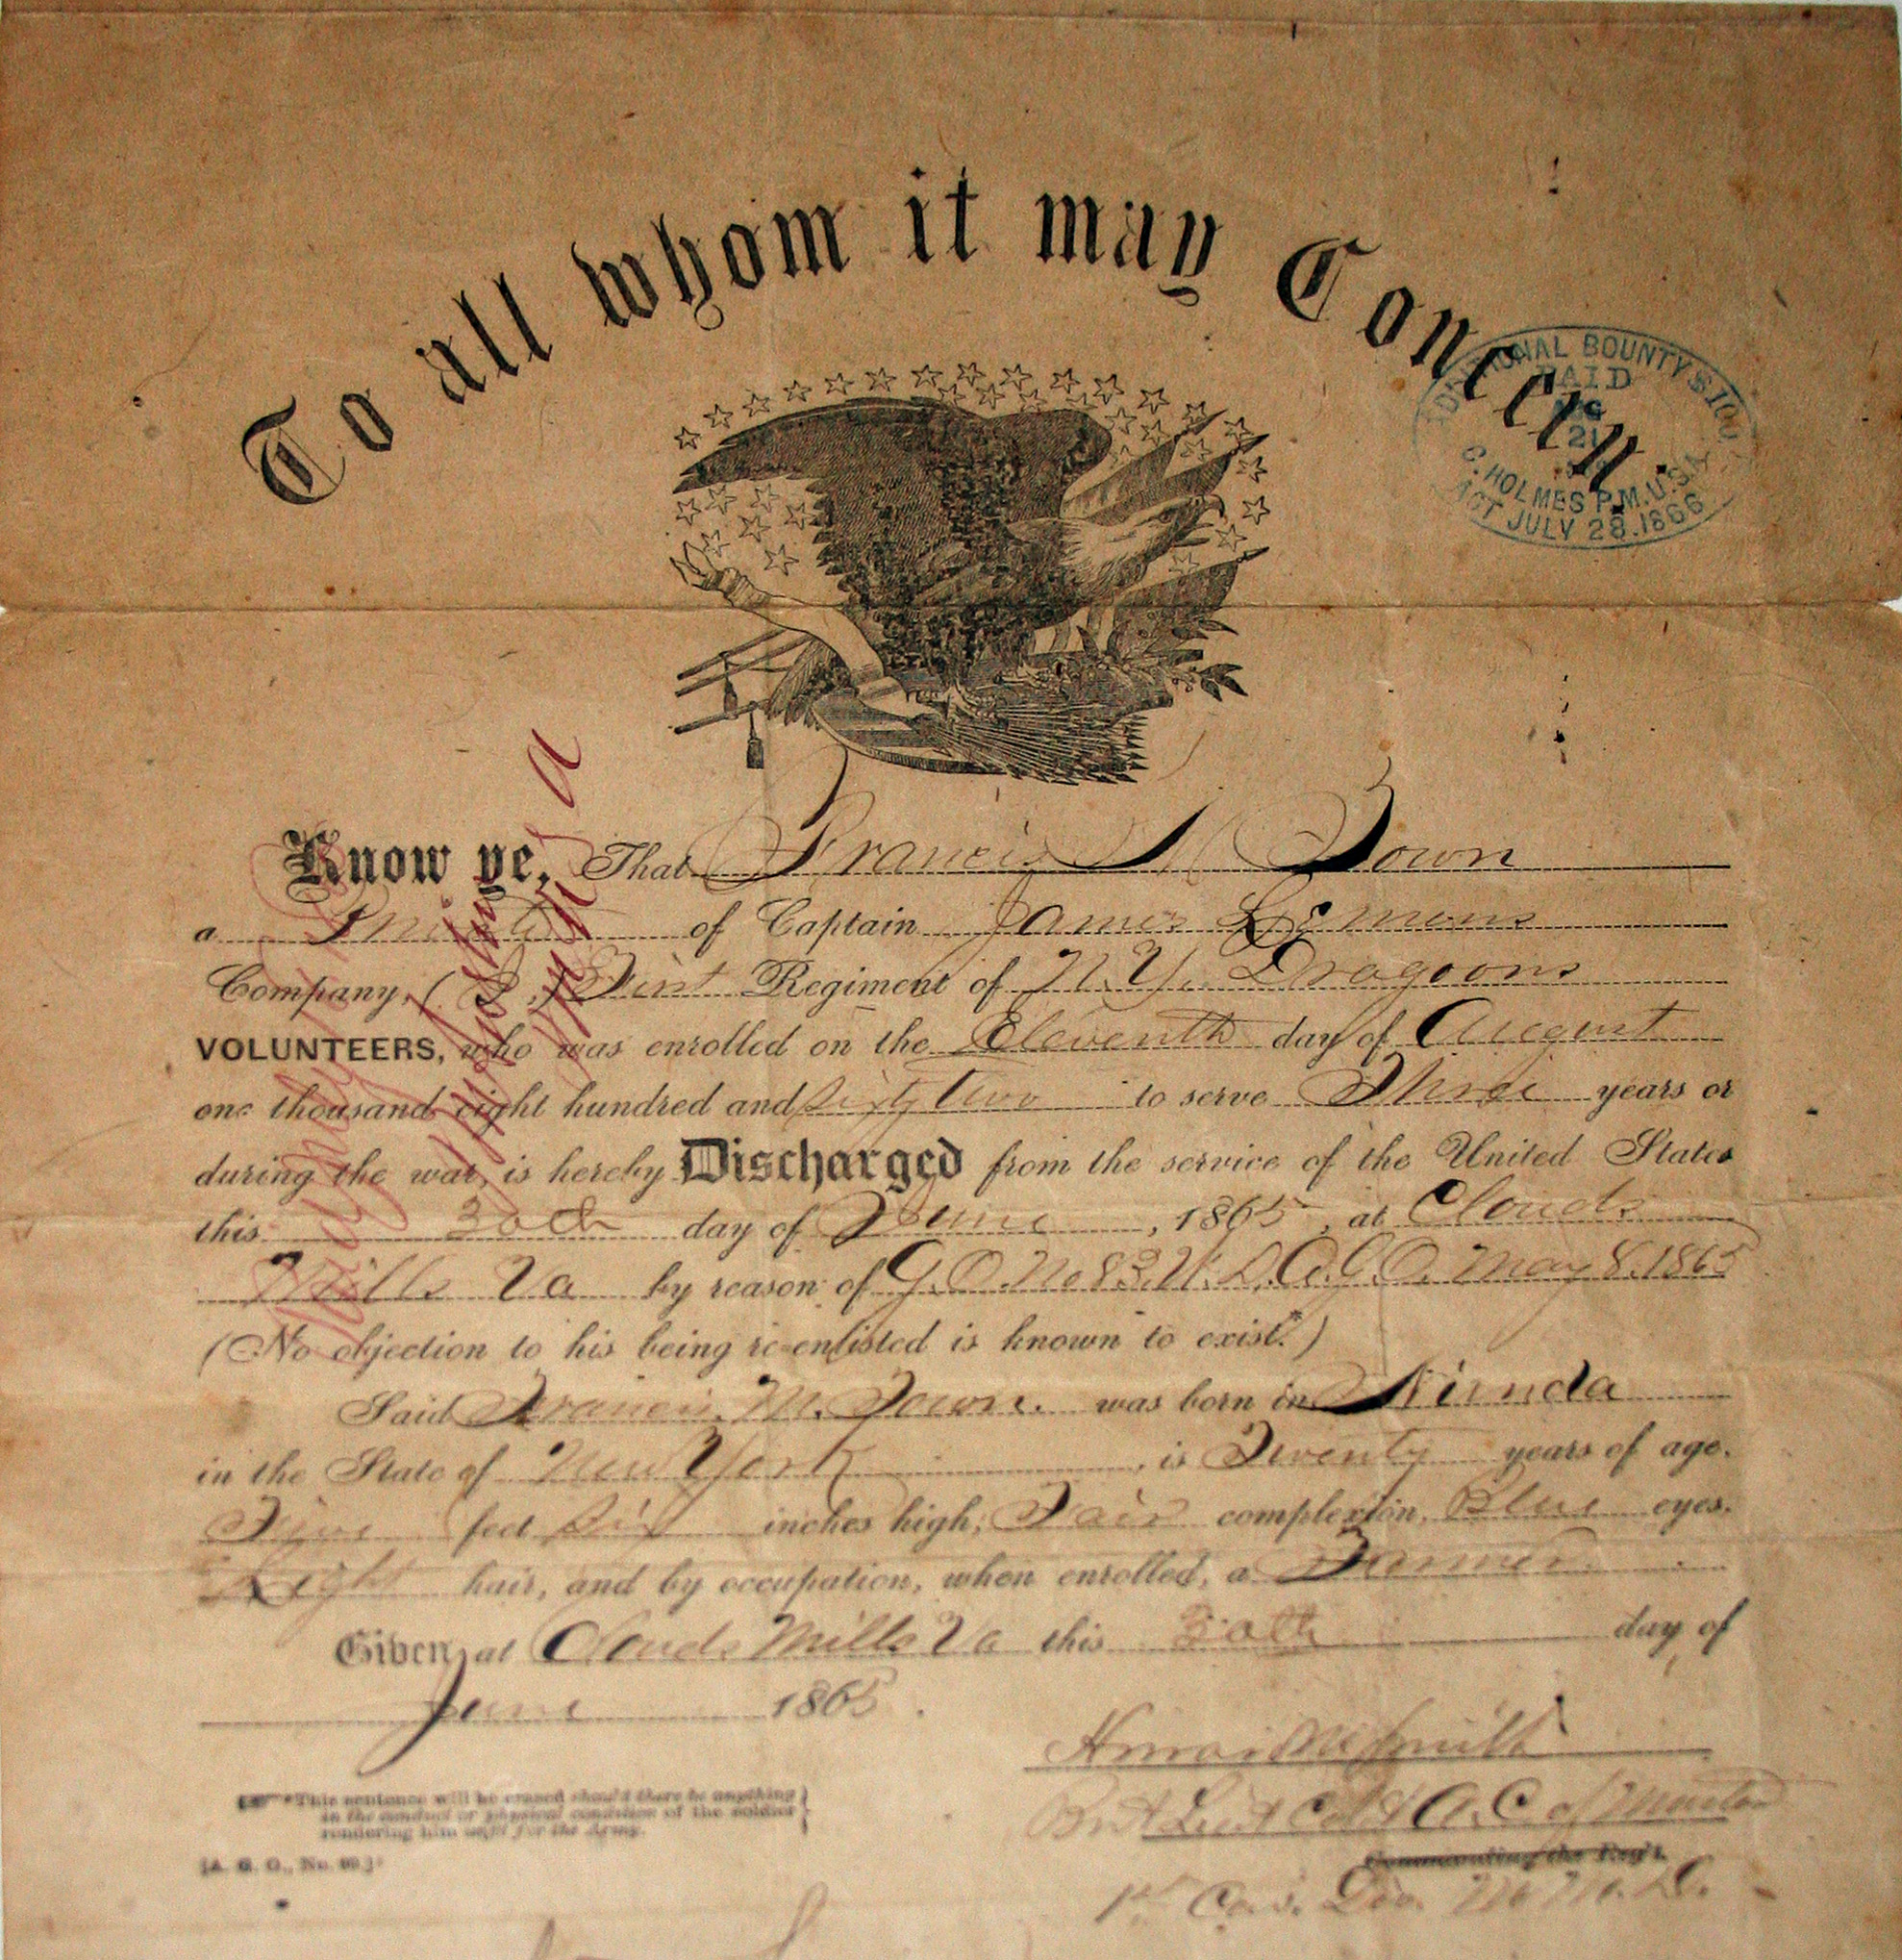 To all whom it may Concern.
ADDITIONAL BOUNTY $100
PAID
AUG
21
C. HOLMES P.M.U.S.A.
ACT JULY 28. 1866
Know ye, That Francis M Town
a Private of Captain James Lemens
Company, ( ) First Regiment of N. Y. Dragoons
VOLUNTEERS, who was enrolled on the Eleventh day of August
one thousand eight hundred and sixty two to serve Three years or
during the war, is hereby Discharged from the service of the United States
this 30th day of June, 1865, at Clouds
Mills Va by reason of G. O. No 83. W. D. A. G. O. May 8. 1865
(No objection to his being re-enlisted is known to exist.*)
Said Francis M. Town. was born in Nunda
in the State of New York, is Twenty years of age.
Five feet Six inches high, Fair complexion, Blue eyes.
Light hair, and by occupation, when enrolled, a Farmer
Given at Clouds Mills Va this 30th day of
June 1865.
*This sentence will be erased should there be anything
in the conduct or physical condition of the soldier
rendering him unfit for the Army.
[A. G. O., No. 99.]
Smith
Bvt Lieut Col & A. C. of Muster
Commanding the Reg't.
1st Cav. Div.